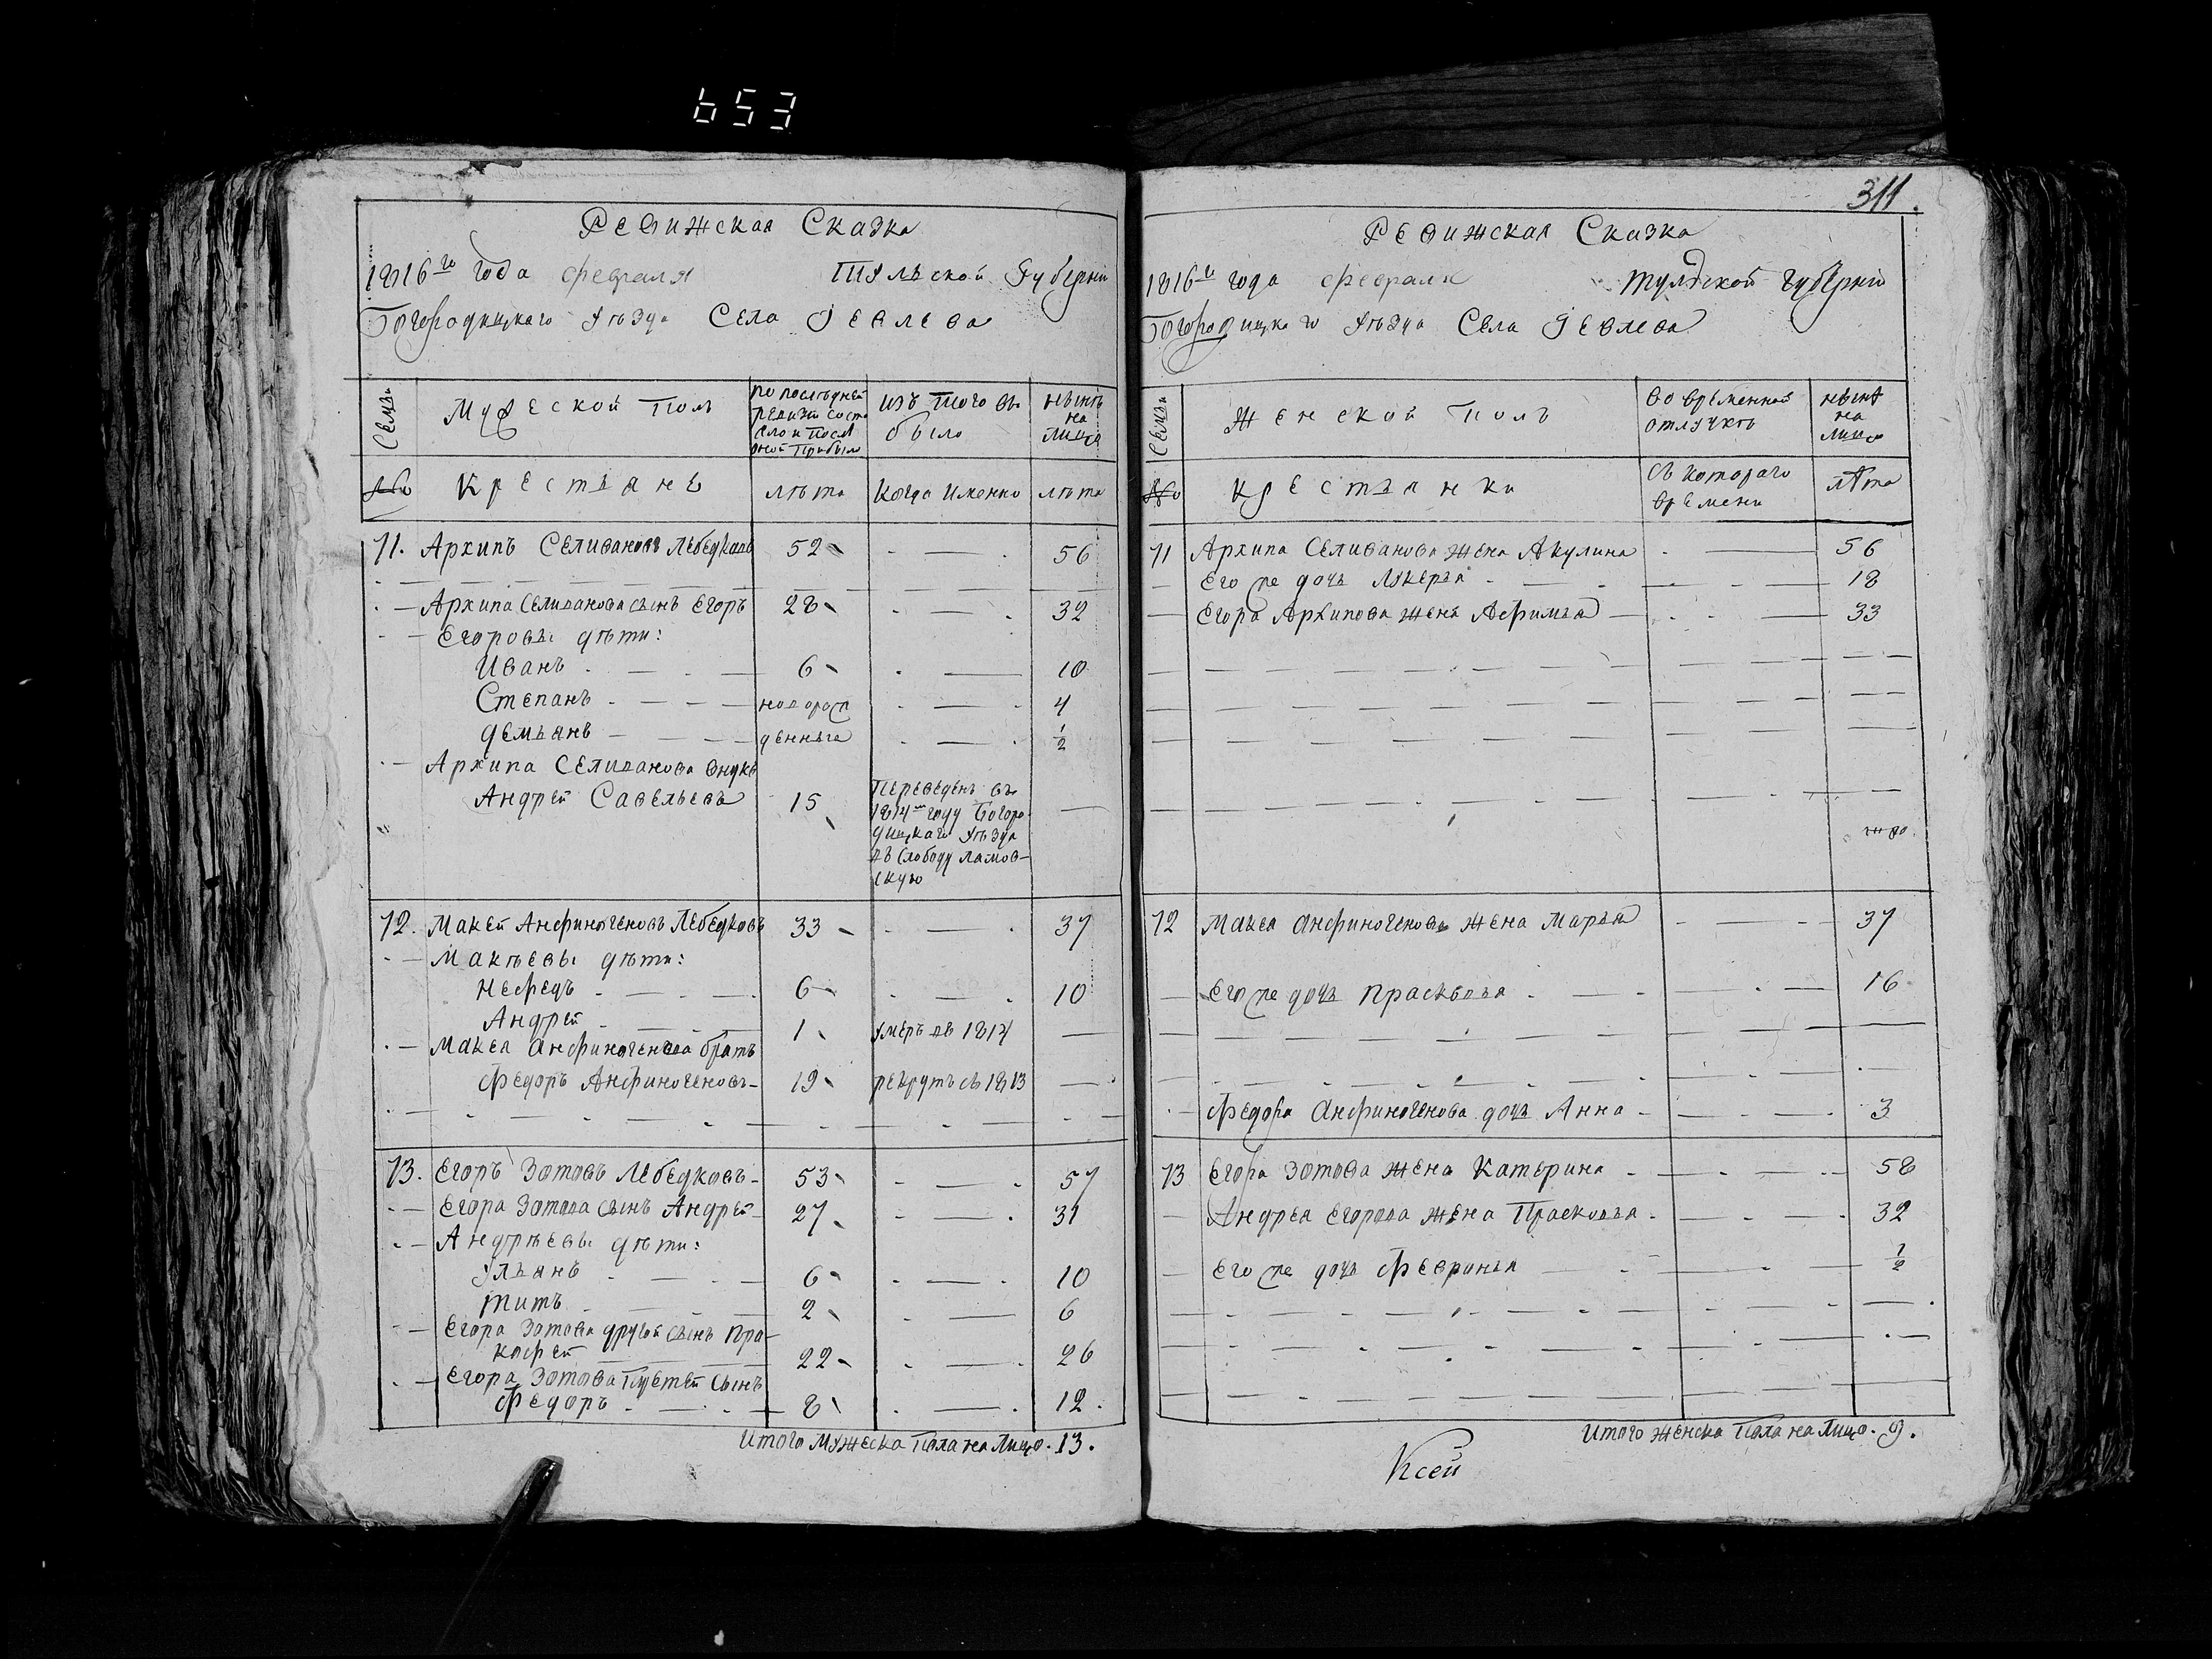 653
Ревижская Сказка
1816го года февраля Тульской Губернiи
Богородицкаго уѣзда Села Iевлева
Семьи
Мужеской полъ
по последней ревизiи состояло и после оной прибыло
изъ того выбыло
нынѣ на лицо
№
Крестьянъ
лѣта
когда именно
лѣта
11. Архипъ Селивановъ Лебедковъ 52 56
Архипа Селиванова сынъ Егоръ 28 32
Егоровы дѣти:
Иванъ 6 10
Степанъ новорож 4
Демьянъ денныя 1/2
Архипа Селиванова внукъ
Андрей Савельевъ 15 Переведенъ въ
1814м году Богоро
дицкаго уѣзда
въ Слободу Ламов-
скую
12. Макей Анфиногеновъ Лебедковъ 33 37
Макѣевы дѣти:
Нефедъ 6 10
Андрей 1 умеръ въ 1814
Макея Анфиногенова братъ
Федоръ Анфиногеновъ 19 рекрутъ съ 1813
13. Егоръ Зотовъ Лебедковъ 53 57
Егора Зотова сынъ Андрей 27 31
Андрѣевы дѣти:
Ульянъ 6 10
Титъ 2 6
Егора Зотова другой сынъ Про-
кофей 22 26
Егора Зотова третей сынъ
Федоръ 8 12.
Итого мужеска пола на лицо. 13.
311.
Ревижская Сказка
1816го года февраля Тульской губернiи
Богородицкаго уѣзда Села Iевлева
Семьи
Женской полъ
во временной отлучкѣ
нынѣ на лицо
№
крестьянки
съ котораго времени
лѣта
11 Архипа Селиванова жена Акулина 56
Его же дочь Лукерья 18
Егора Архипова жена Афимья 33
12 Макея Анфиногенова жена Марья 37
Его же дочь Прасковья 16
Федора Анфиногенова дочь Анна 3
13 Егора Зотова жена Катерина 58
Андрея Егорова жена Прасковья 32
Его же дочь Февронья 1/2
Итого женска пола на лицо. 9.
Ксей